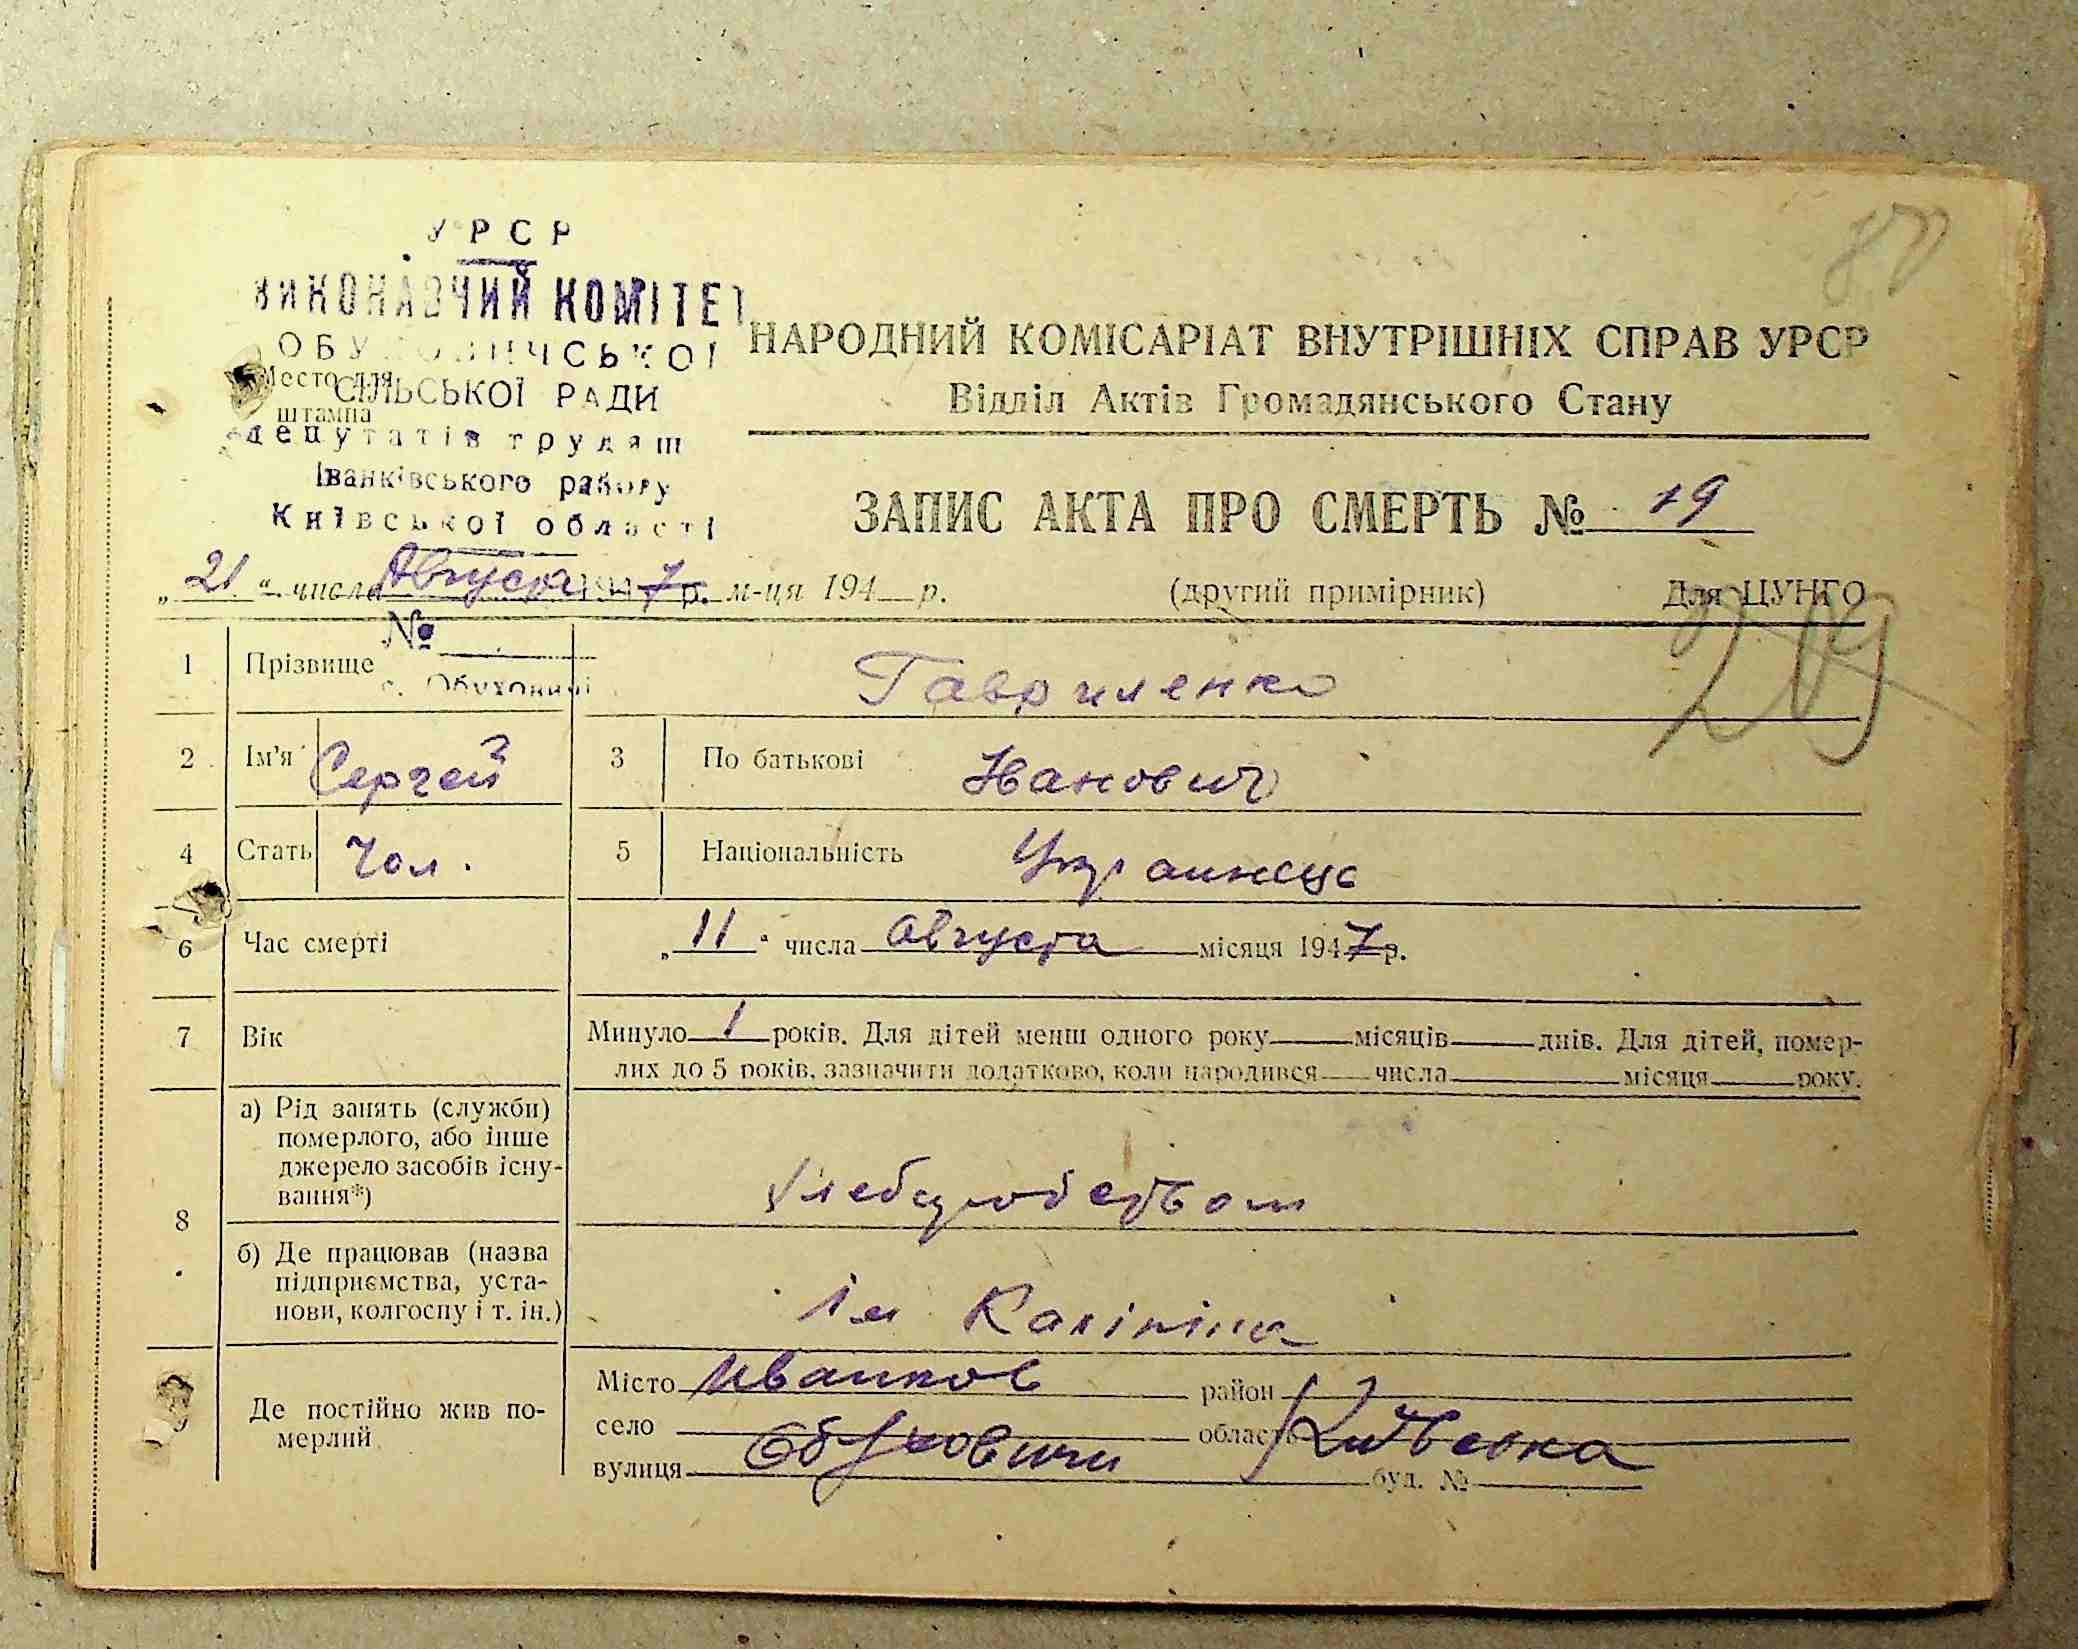 80
УРСР
ВИКОНАВЧИЙ КОМІТЕТ
ОБУХОВИЧСЬКОЇ
Место для
СІЛЬСЬКОЇ РАДИ
штампа
депутатів трудящ
Іванківського району
Київської області
НАРОДНИЙ КОМІСАРІАТ ВНУТРІШНІХ СПРАВ УРСР
Відділ Актів Громадянського Стану
ЗАПИС АКТА ПРО СМЕРТЬ № 19
„21“ числа Августа 1947 р. м-ця 194 р. (другий примірник) Для ЦУНГО
№
с. Обуховичі
1 Прізвище Гавриленко
2 Ім'я Сергей 3 По батькові Иванович
4 Стать Чол. 5 Національність Украинець
6 Час смерті „11“ числа августа місяця 1947 р.
7 Вік Минуло 1 років. Для дітей менш одного року місяців днів. Для дітей, помер-
лих до 5 років, зазначити додатково, коли народився числа місяця року.
8 а) Рід занять (служби)
померлого, або інше
джерело засобів існу-
вання*)
б) Де працював (назва
підприємства, уста-
нови, колгоспу і т. ін.)
ім Калініна
Де постійно жив по-
мерлий
Місто Иванков район
село Обуховичи область Київська
вулиця буд. №